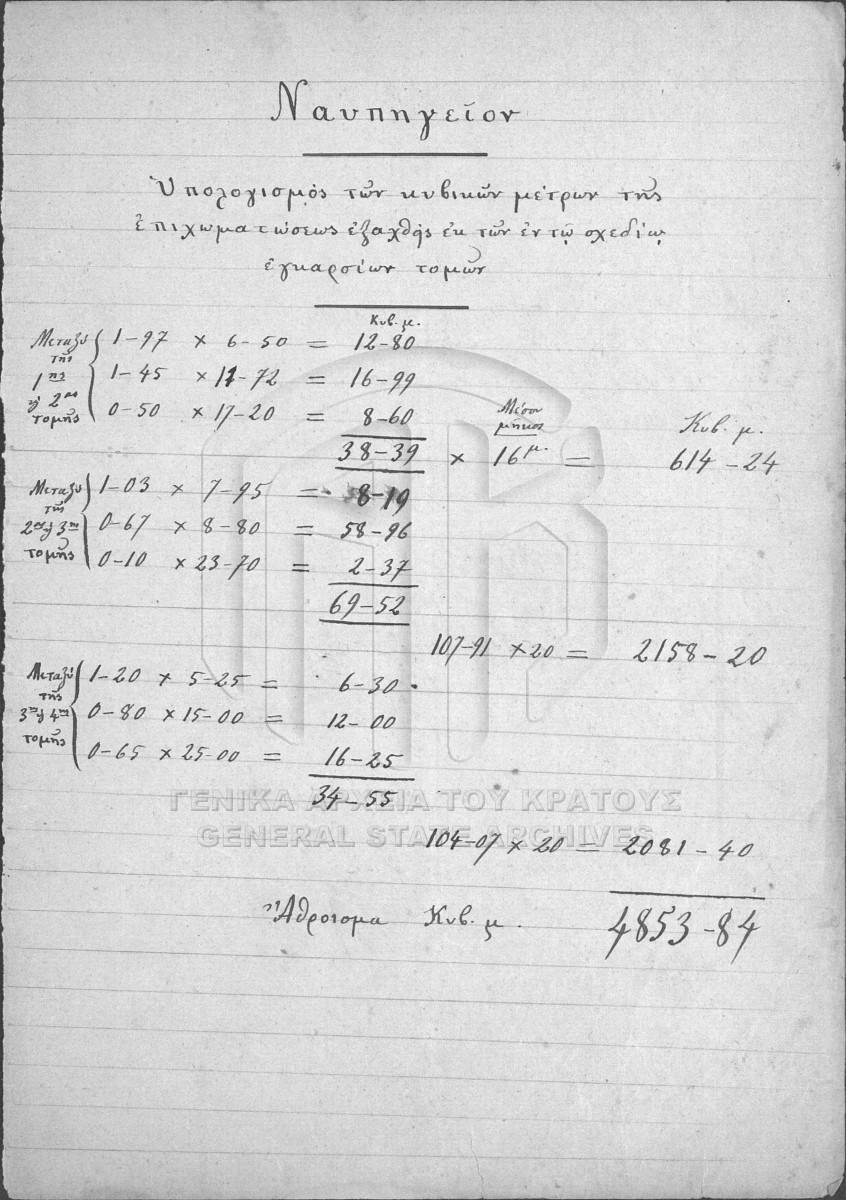 Ναυπηγεῖον
Ὑπολογισμὸς τῶν κυβικῶν μέτρων τῆς
ἐπιχωματώσεως ἐξαχθεὶς ἐκ τῶν ἐν τῷ σχεδίῳ
ἐγκαρσίων τομῶν
Κυβ. μ.
Μεταξὺ 1-97 × 6-50 = 12-80
τῆς
1ης 1-45 × 11-72 = 16-99
2ας 0-50 × 17-20 = 8-60
τομῆς
Μέσον
μῆκος Κυβ. μ.
38-39 × 16μ. = 614-24
Μεταξὺ 1-03 × 7-95 = 8-19
τῆς
2ας 3ης 0-67 × 8-80 = 58-96
τομῆς 0-10 × 23-70 = 2-37
69-52
107-91 × 20 = 2158-20
Μεταξὺ 1-20 × 5-25 = 6-30
τῆς
3ης 4ης 0-80 × 15-00 = 12-00
τομῆς 0-65 × 25-00 = 16-25
34-55
ΓΕΝΙΚΑ ΑΡΧΕΙΑ ΤΟΥ ΚΡΑΤΟΥΣ
GENERAL STATE ARCHIVES
104-07 × 20 = 2081-40
Ἄθροισμα Κυβ. μ. 4853-84